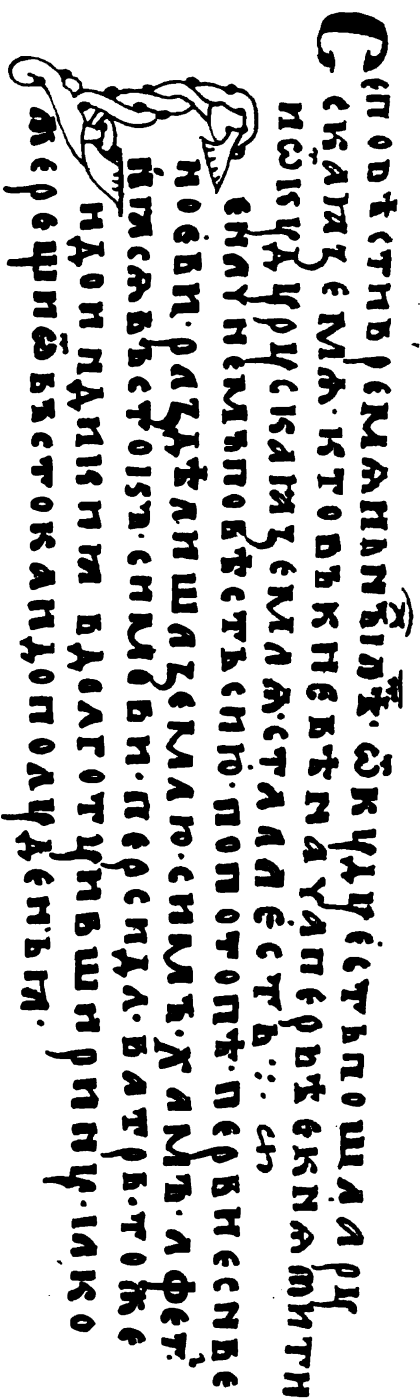 Сєповѣстиврємѧньныⷯлѣⷮ·ѿкꙋдꙋєстьпошларꙋ
скаꙗзємлѧ·ктовъкиєвѣначапєрвѣєкнѧжити
иѿкꙋдꙋрꙋскаꙗзємлѧсталаєсть჻ с
єначнємъповѣстьсию·попотопѣ·пєрвиєснвє
ноєви·раздѣлишазємлю·симъ·хамъ·афєтⷺ·
иꙗсѧвъстокъ·симови·пєрсида·ватрь·тожє
идоиндикиꙗ вдолготꙋивширинꙋ·ꙗко
жєрєщиѿвъстокаидополꙋдєньꙗ·